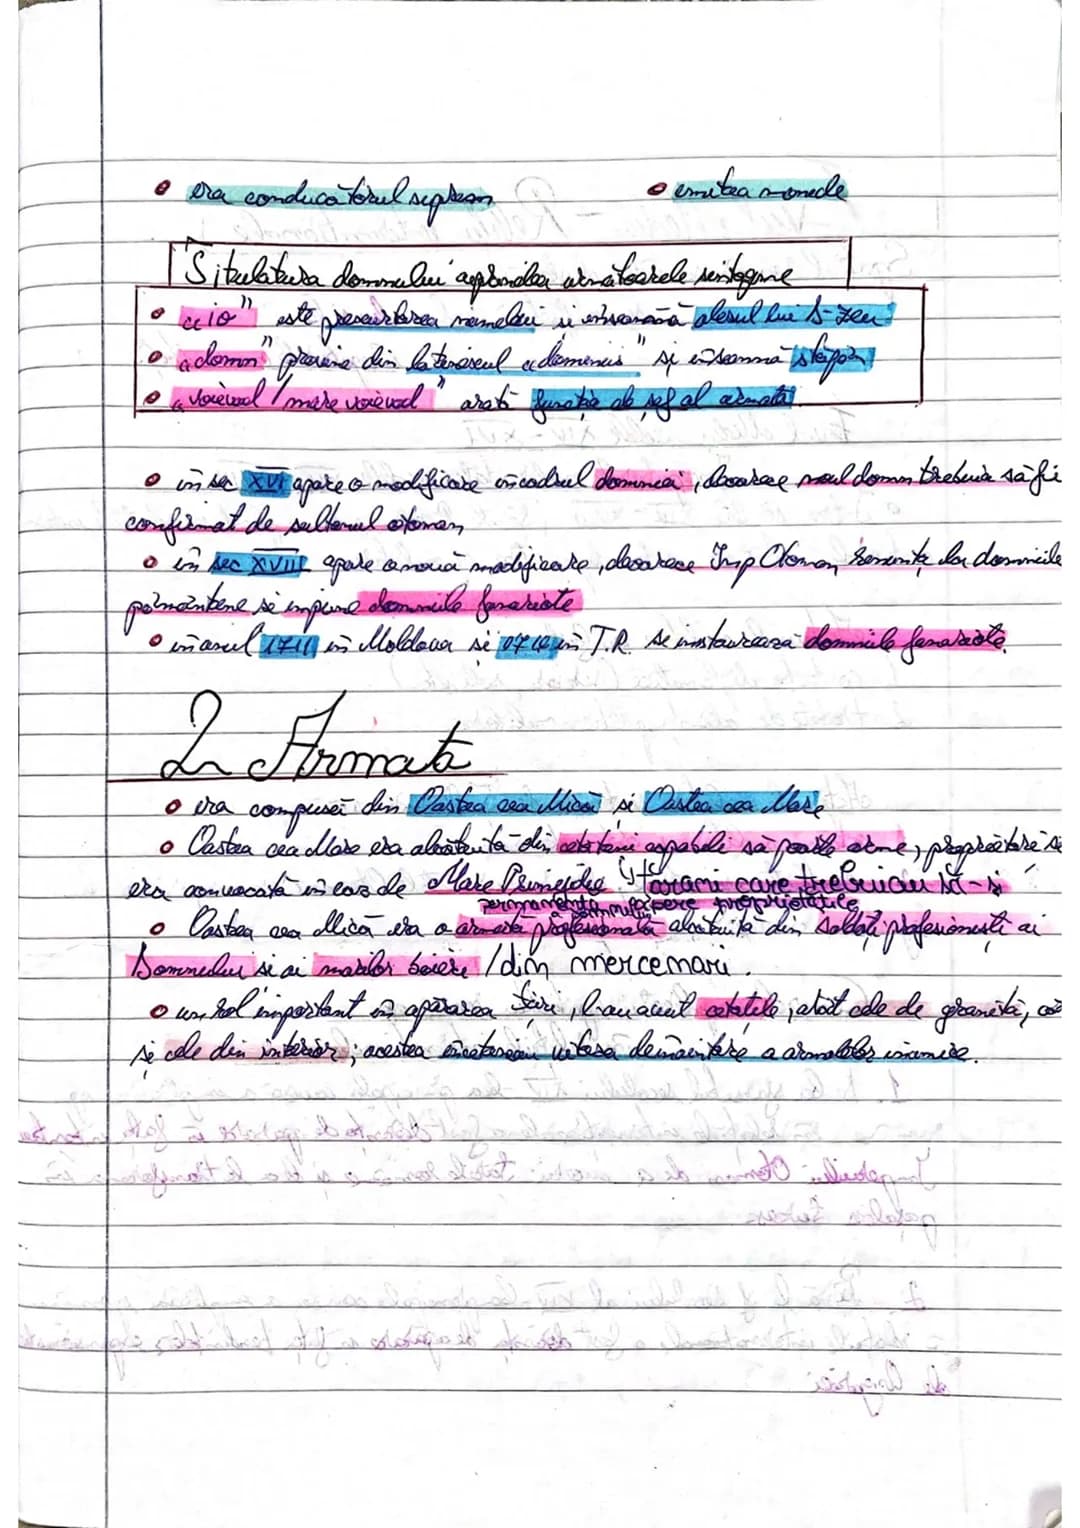 era conducătorul suprem
emitea monede
Titulatura domnului cuprindea următoarele sintagme
„io" este prescurtarea numelui și înseamnă alesul lui D-zeu
„domn" provine din latinescul „dominus" și înseamnă stăpân
„voievod / mare voievod" arată funcția de șef al armatei
în sec XVI apare o modificare în cadrul domniei, deoarece noul domn trebuia să fie
confirmat de sultanul otoman
în sec XVIII apare o nouă modificare, deoarece Imp Otoman renunță la domniile
pământene și impune domniile fanariote
în anul 1711 în Moldova și 1716 în T.R. se instaurează domniile fanariote.
2 Armata
era compusă din Oastea cea Mică și Oastea cea Mare
Oastea cea Mare era alcătuită din cetățeni capabili să poarte arme, proprietare și
era convocată în caz de Mare Primejdie țărani care trebuiau să-și
permanentă domnului apere proprietățile
Oastea cea Mică era o armată profesionată alcătuită din soldați profesioniști ai
Domnului și ai marilor boieri / din mercenari.
un rol important în apărarea țării, l-au avut cetățile, atât cele de graniță, cât
și cele din interior; acestea încetineau viteza de înaintare a armatelor inamice.